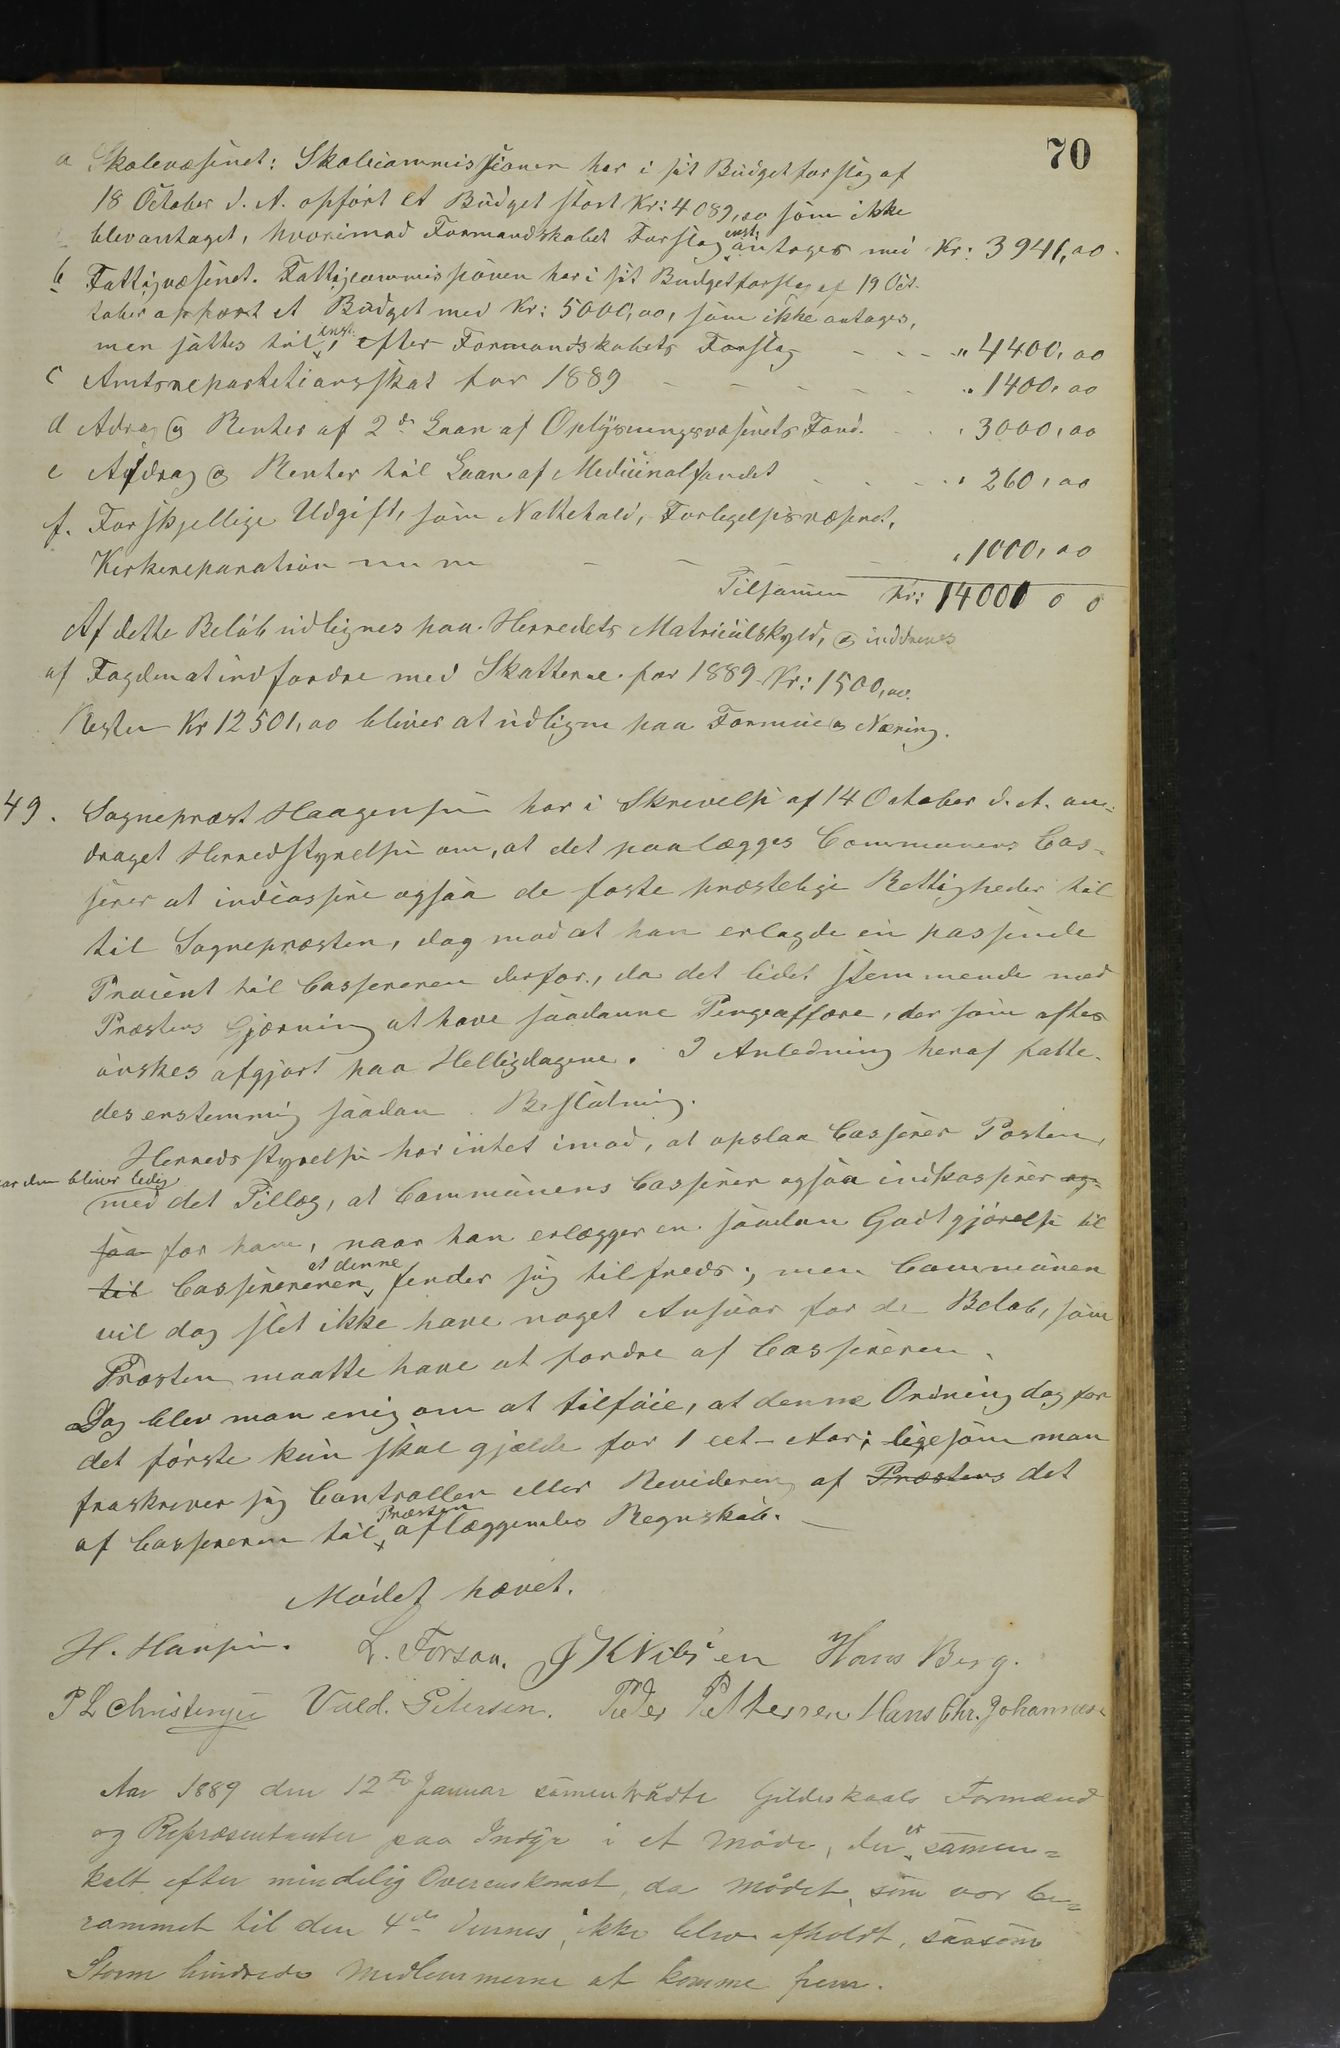 70
a Skolevæsenet: Skolecommissionen har i sit Budgetforslag af
18 October d. A. opført et Budget stort Kr: 4089,00 som ikke
blev antaget, hvorimod Formandskabet Forslag enst. antages med Kr: 3941,00.
b Fattigvæsenet. Fattigcommissionen har i sit Budgetforslag af 19 Oct.
tober opført et Budget med Kr: 5000,00, som ikke antages,
men sattes enst. til, efter Formandskabets Forslag - - - " 4400,00
c Amtsrepartetionsskat for 1889 - - - - - " 1400,00
d Adrag og Renter af 2de Laan af Oplysningsvæsenets Fond. - - " 3000,00
e Afdrag og Renter til Laan af Medicinalfondet - - - - " 260,00
f. Forskjellige Udgift, som Nattehold, Forlegelsesvæsenet,
Kirkereparation m m - - - - " 1000,00
Tilsamen Kr: 14001 00
Af dette Beløb udlignes paa Herredets Matriculskyld, og inddrives
af Fogden at indfordre med Skatterne for 1889 Kr: 1500,00.
Resten Kr 12501,00 bliver at udligne paa Formue og Næring.
49. Sognepræst Haagensen har i Skrivelse af 14 October d. A. an-
draget Herredstyrelsen om, at det paalægges Communens Cas-
serer at indcassere ogsaa de faste præstelige Rettigheder til
til Sognepræsten, dog mod at han erlagde en passende
Procent til Cassereren derfor, da det lidet stemmende med
Præstens Gjerning at have saadanne Pengeaffære, der som oftes
ønskes afgjort paa Helligdagene. I Anledning heraf fatte-
des enstemmig saadan Beslutning.
Herredsstyrelsen har intet imod, at opslaa Casserer Posten,
naar den bliver ledig
med det Tillæg, at Communens Casserer ogsaa indkasserer og-
saa for ham, naar han erlægger en saadan Godtgjørelse til
til Cassereren, at denne finder sig tilfreds; men Communen
vil dog slet ikke have noget Ansvar for de Beløb, som
Præsten maatte have at fordre af Cassereren.
Dog blev man enig om at tilføie, at denne Ordning dog for
det første kun skal gjælde for 1 eet Aar; ligesom man
fraskriver sig Controllen eller Revidering af Præstens det
af Cassereren til Præsten aflæggendes Regnskab. -
Mødet hævet.
H. Hansen. L. Forsaa. J K Nilsen Hans Berg.
P L Christensen Vald. Petersen. Peder Pettersen Hans Chr. Johannes.
Aar 1889 den 12te Januar samentrådte Gildeskaals Formænd
og Repræsentanter paa Indyr i et Møde, der er samen-
kalt efter mindelig Overenskomst, da Mødet, som var be-
rammet til den 4de dennes, ikke blev afholdt, saasom
Storm hindrede Medlemmerne at komme frem.